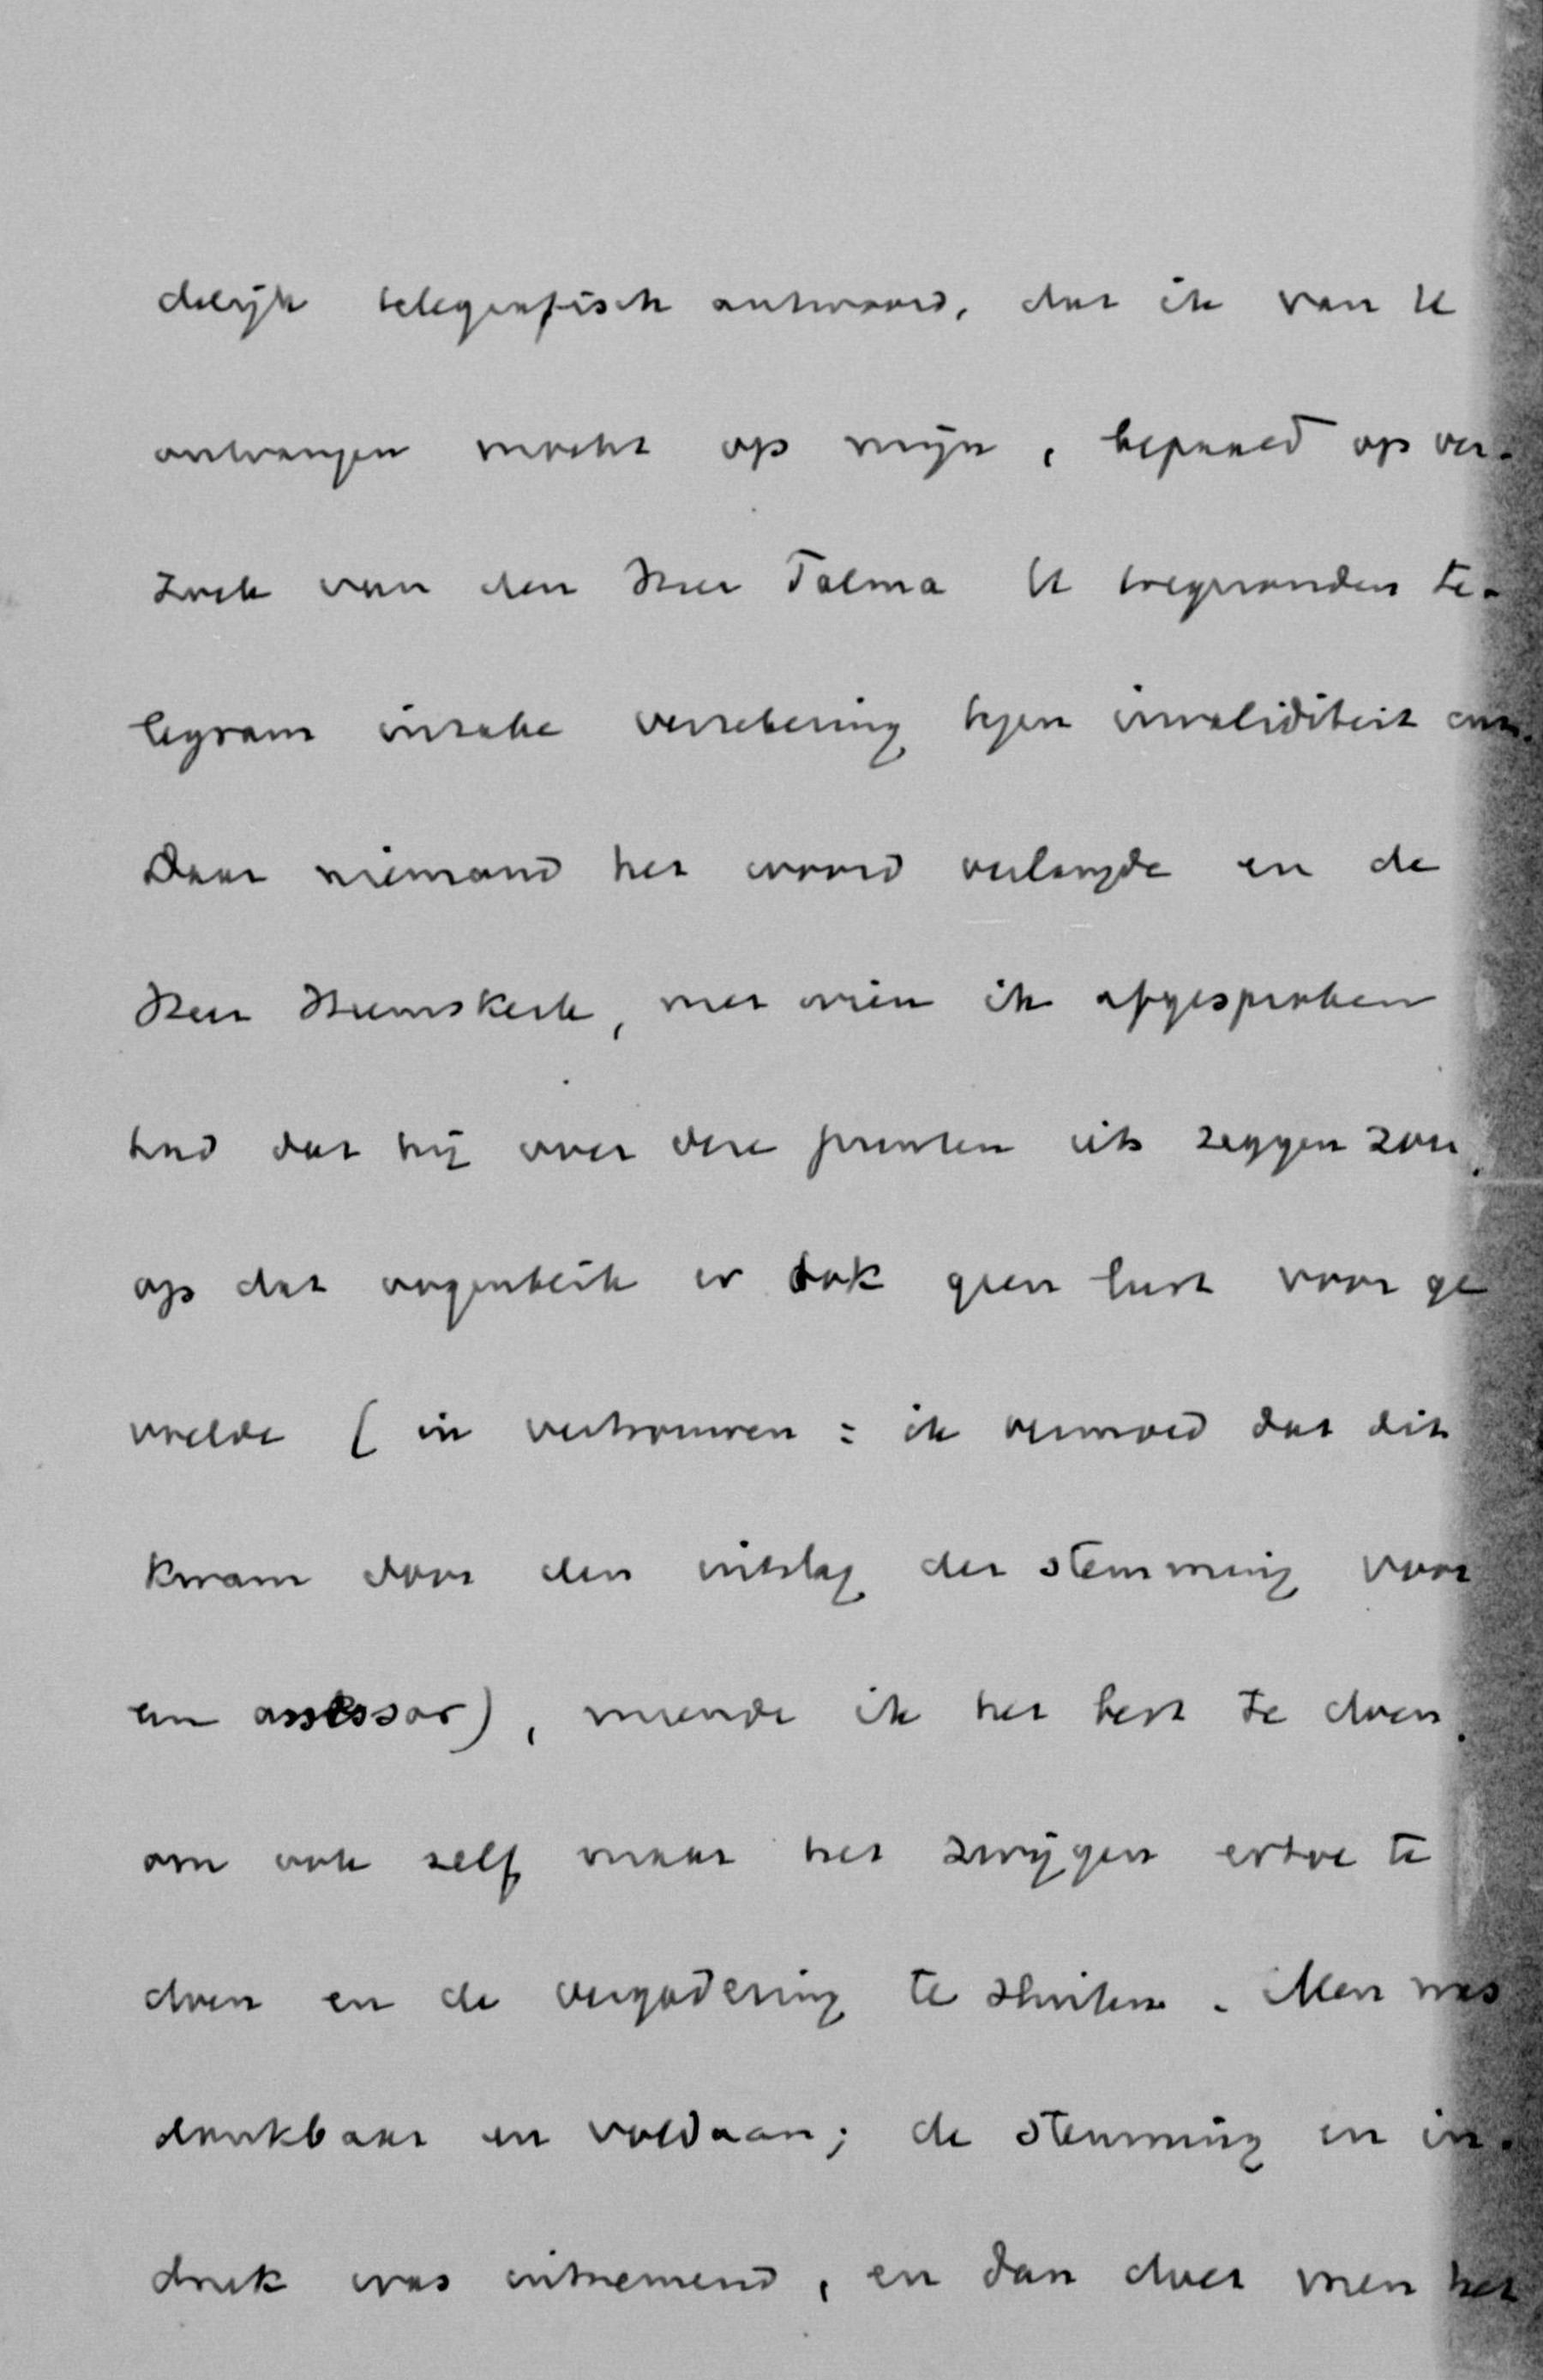 delijk telegrafisch antwoord, dat ik van U
ontvangen mocht op mijn, bepaald op ver-
zoek van den Heer Talma U toegezonden te-
legram inzake verzekering tegen invaliditeit enz.
Daar niemand het woord verlangde en de
Heer Heemskerk, met wien ik afgesproken
had dat hij over deze punten iets zeggen zou,
op dat oogenblik er ook geen lust voor ge
voelde (in vertrouwen: ik vermoed dat dit
kwam door den uitslag der stemming voor
een assessor), meende ik het best te doen,
om ook zelf maar het zwijgen ertoe te
doen en de vergadering te sluiten. Men was
dankbaar en voldaan; de stemming en in-
druk was uitnemend, en dan doet men het